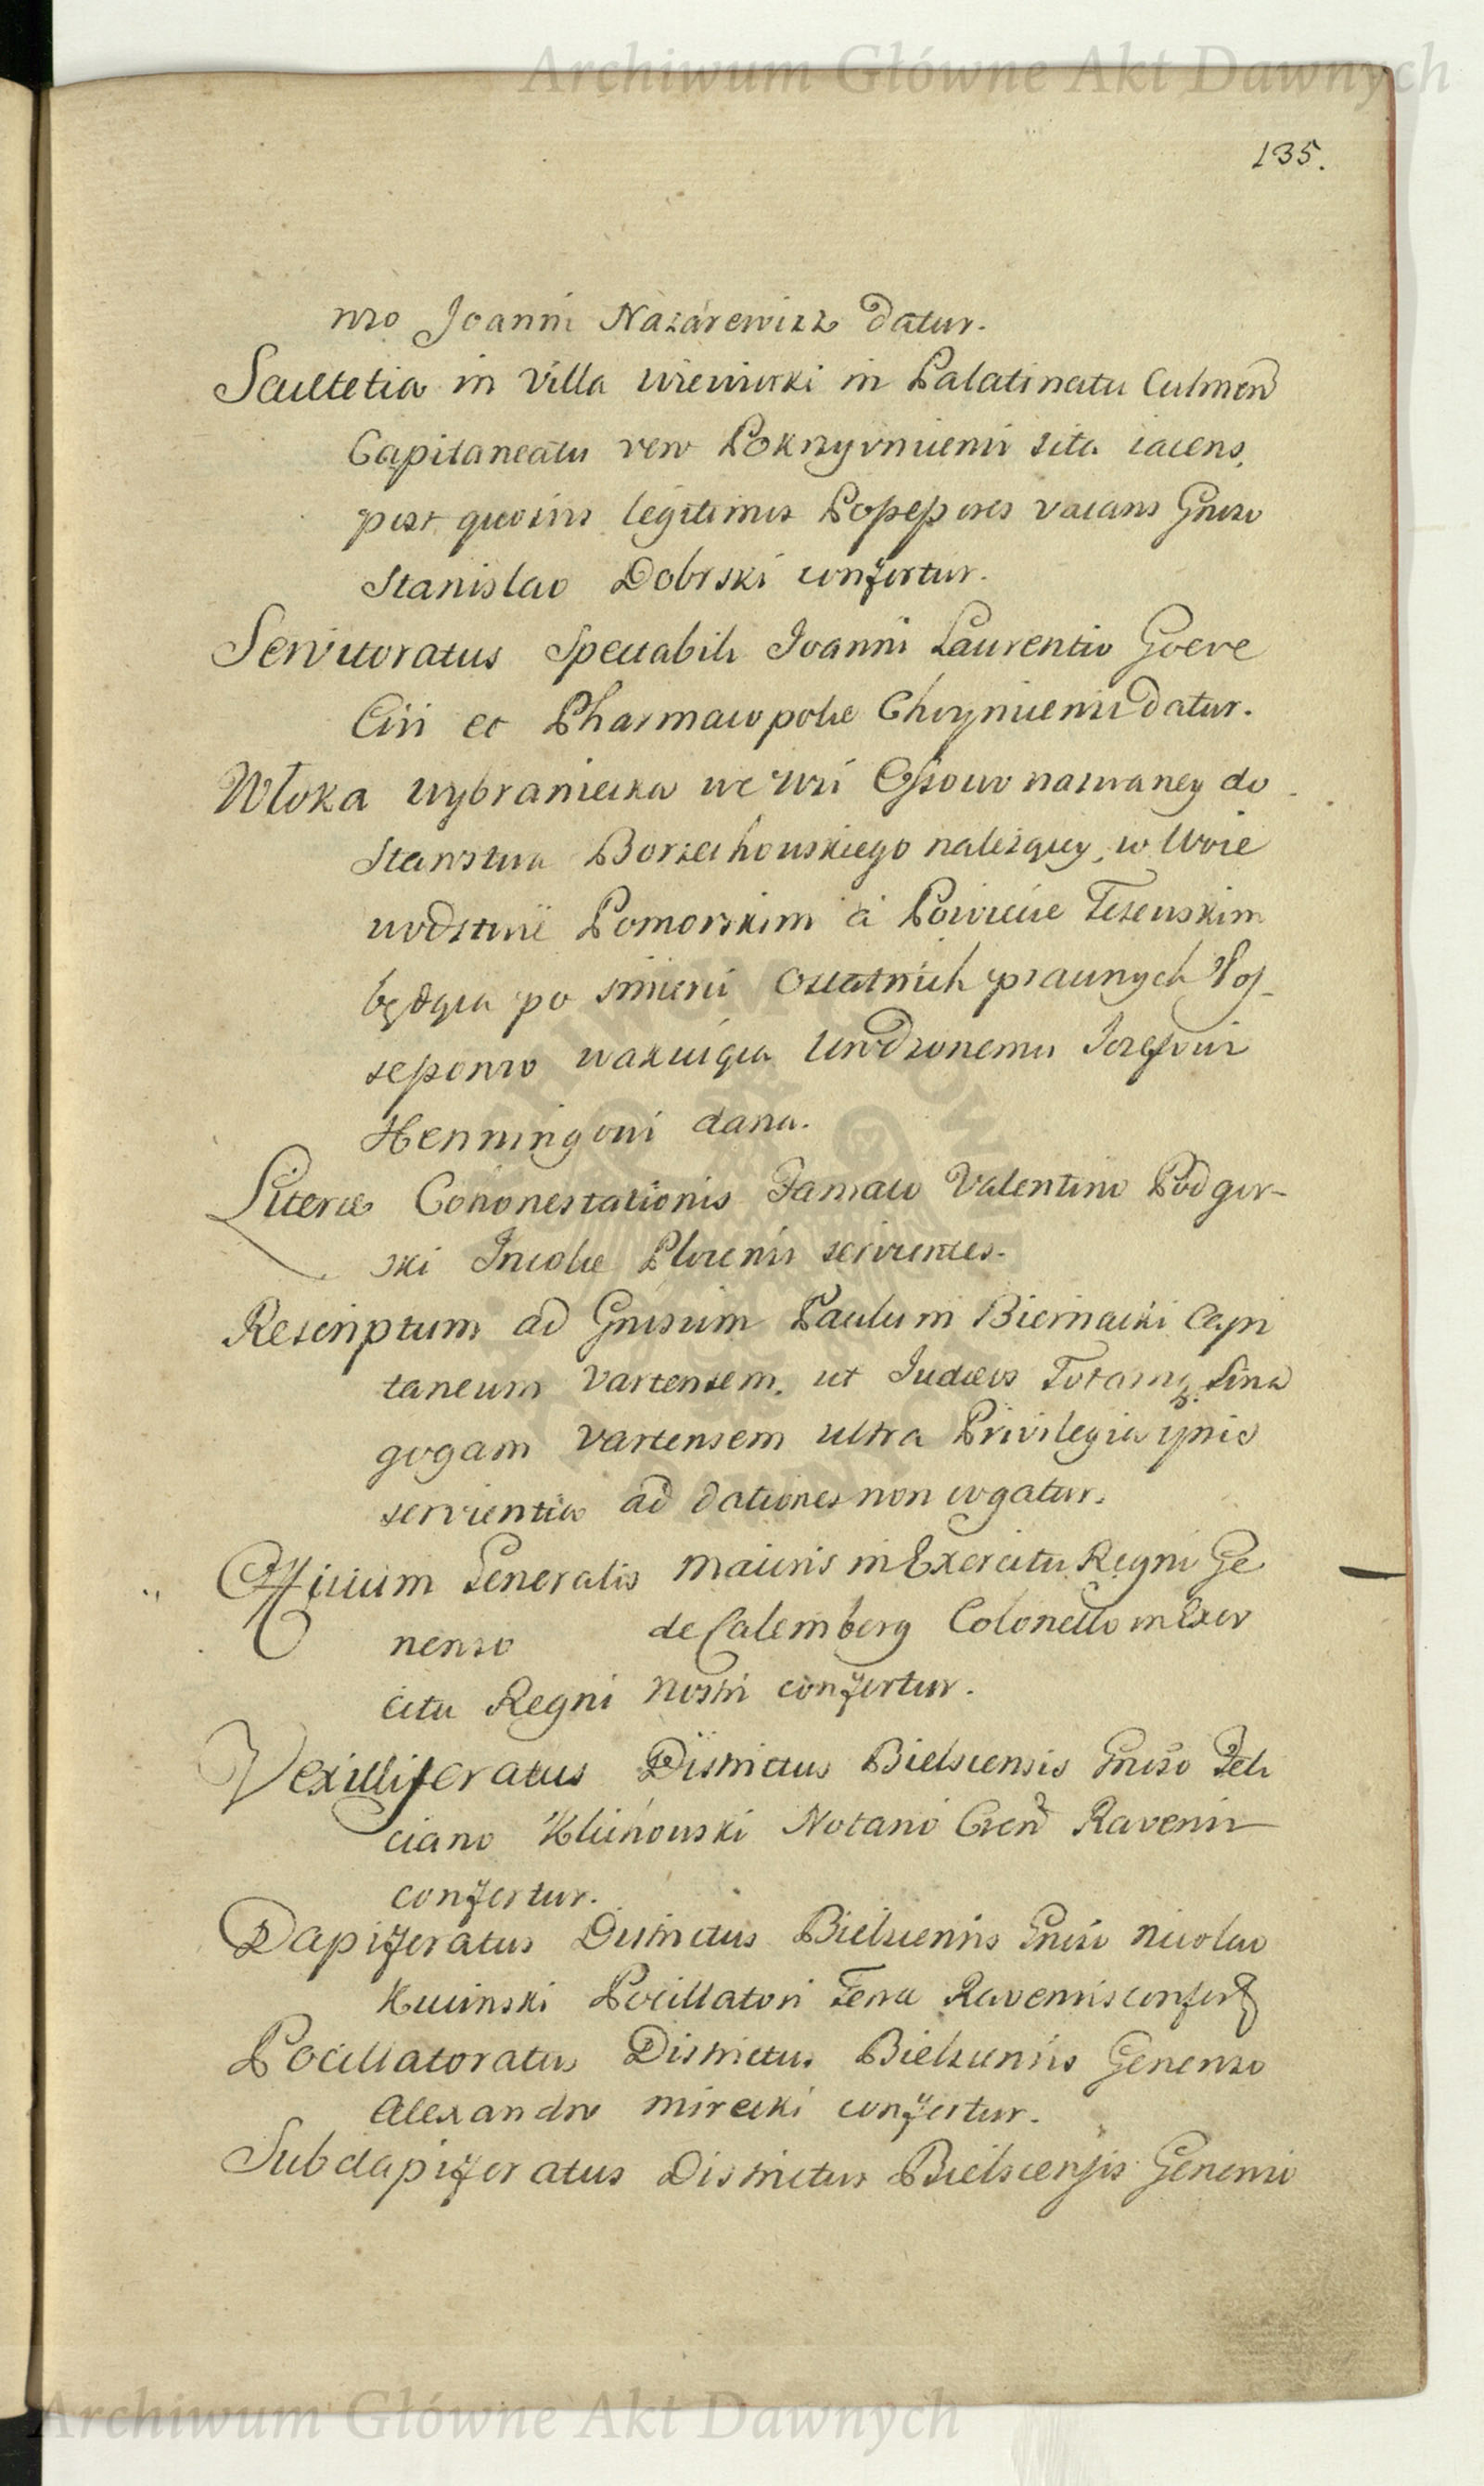 Archiwum Główne Akt Dawnych
135.
nro Joanni Nazarewicz datur.
Scultetia in Villa Wieniwrki in Palatinatu Culmen
Capitaneatu vero Pokrzywnicensi sita iacens,
post quorius legitimos Possessores vacans Gnroso
Stanislao Dobrski confertur.
Servitoratus Spectabili Joanni Laurentio Goere
Civi et Pharmacopolae Choynicensi datur.
Włoka wybraniecka we wsi Ossowo nazwaney do
Starostwa Borzechowskiego należącey, w Woie
wodztwie Pomorskim a Powiecie Tczewskim
będąca po śmierci ostatnich prawnych Pos-
sessorow wakuiąca Urodzonemu Jozefowi
Henningowi dana.
Literae Cohonestationis Famato Valentino Podgor-
ski Incolae Plocensi servientes.
Rescriptum ad Gnrosum Paulum Biernacki Capi
taneum Vartensem, ut Judaeos Totamq Sina
gogam Vartensem ultra Privilegia ipsis
servientia ad dationes non cogatur.
Officium Generalis Maioris in Exercitu Regni Ge
neroso de Calemberg Colonello in Exer
citu Regni Nostri confertur.
Vexilliferatus Districtus Bielscensis Gnroso Feli
ciano Klichowski Notario Cren Ravensi
confertur.
Dapiferatus Districtus Bielscensis Gnroso Nicolao
Kucinski Pocillatori Terrae Ravensis confert
Pocillatoratus Districtus Bielscensis Generoso
Alexandro Mirecki confertur.
Subdapiferatus Districtus Bielscensis Generoso
Archiwum Główne Akt Dawnych